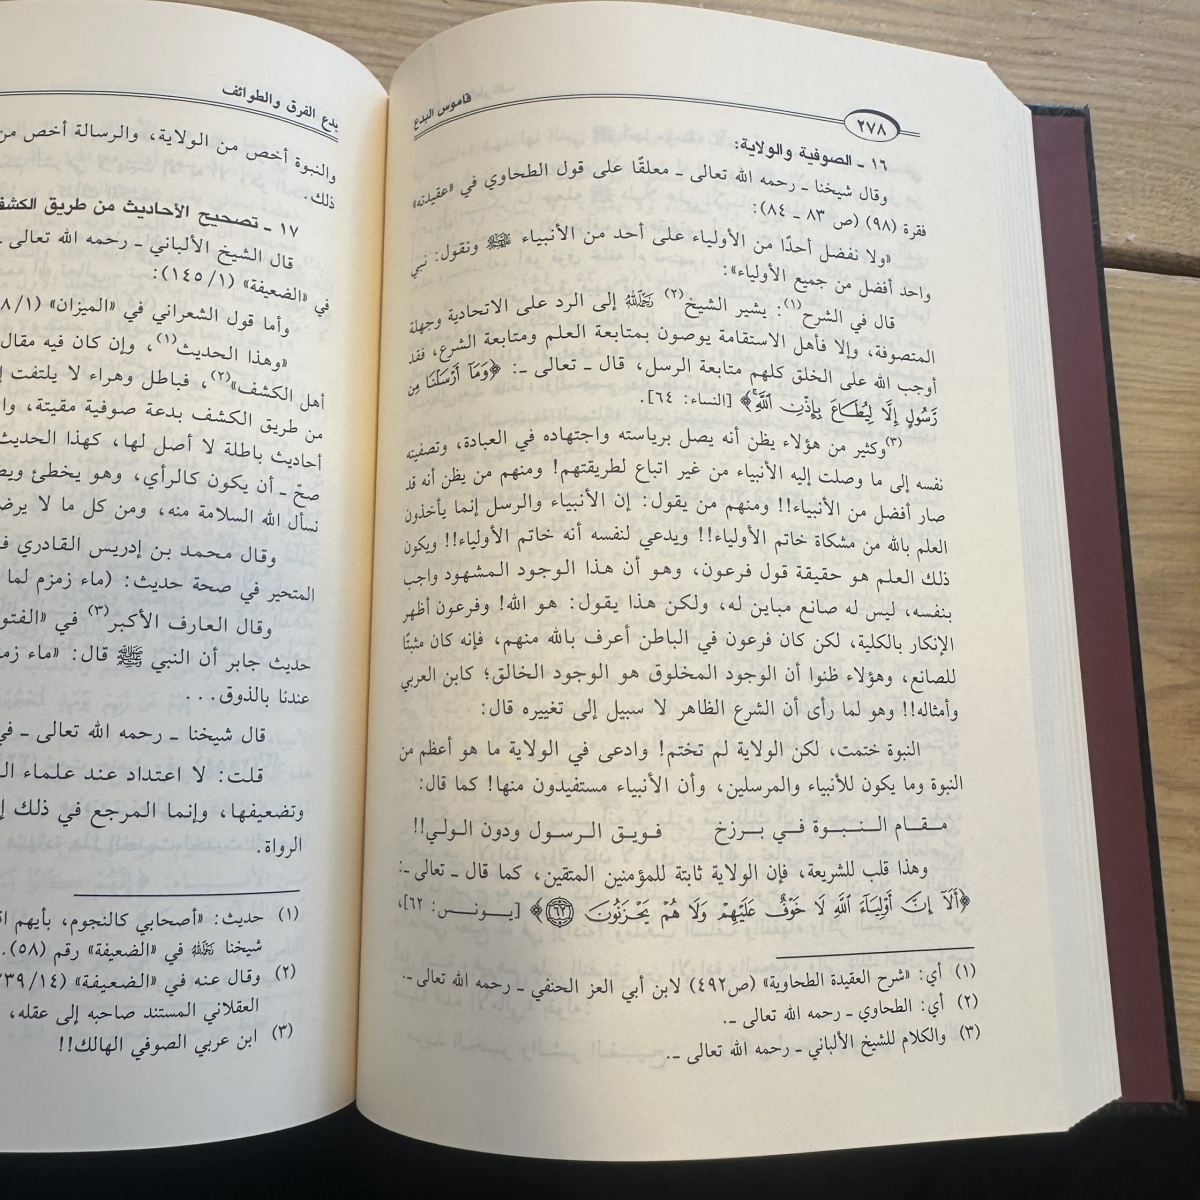 ٢٧٨
قاموس البدع
١٦ ـ الصوفية والولاية:
وقال شيخنا ـ رحمه الله تعالى ـ معلقًا على قول الطحاوي في «عقيدته»
فقرة (٩٨) (ص ٨٣ ـ ٨٤):
«ولا نفضل أحدًا من الأولياء على أحد من الأنبياء ﷺ ونقول: نبي
واحد أفضل من جميع الأولياء»:
قال في الشرح(١): يشير الشيخ(٢) رحمه الله إلى الرد على الاتحادية وجهلة
المتصوفة، وإلا فأهل الاستقامة يوصون بمتابعة العلم ومتابعة الشرع، فقد
أوجب الله على الخلق كلهم متابعة الرسل، قال ـ تعالى ـ: ﴿وَمَا أَرْسَلْنَا مِن
رَّسُولٍ إِلَّا لِيُطَاعَ بِإِذْنِ اللَّهِ﴾ [النساء: ٦٤].
(٣)وكثير من هؤلاء يظن أنه يصل برياسته واجتهاده في العبادة، وتصفيته
نفسه إلى ما وصلت إليه الأنبياء من غير اتباع لطريقتهم! ومنهم من يظن أنه قد
صار أفضل من الأنبياء!! ومنهم من يقول: إن الأنبياء والرسل إنما يأخذون
العلم بالله من مشكاة خاتم الأولياء!! ويدعي لنفسه أنه خاتم الأولياء!! ويكون
ذلك العلم هو حقيقة قول فرعون، وهو أن هذا الوجود المشهود واجب
بنفسه، ليس له صانع مباين له، ولكن هذا يقول: هو الله! وفرعون أظهر
الإنكار بالكلية، لكن كان فرعون في الباطن أعرف بالله منهم، فإنه كان مثبتًا
للصانع، وهؤلاء ظنوا أن الوجود المخلوق هو الوجود الخالق؛ كابن العربي
وأمثاله!! وهو لما رأى أن الشرع الظاهر لا سبيل إلى تغييره قال:
النبوة ختمت، لكن الولاية لم تختم! وادعى في الولاية ما هو أعظم من
النبوة وما يكون للأنبياء والمرسلين، وأن الأنبياء مستفيدون منها! كما قال:
مقام النبوة في برزخ فويق الرسول ودون الولي!!
وهذا قلب للشريعة، فإن الولاية ثابتة للمؤمنين المتقين، كما قال ـ تعالى ـ:
﴿أَلَآ إِنَّ أَوْلِيَاءَ اللَّهِ لَا خَوْفٌ عَلَيْهِمْ وَلَا هُمْ يَحْزَنُونَ ٦٢﴾ [يونس: ٦٢]،
(١) أي: «شرح العقيدة الطحاوية» (ص٤٩٢) لابن أبي العز الحنفي ـ رحمه الله تعالى ـ.
(٢) أي: الطحاوي ـ رحمه الله تعالى ـ.
(٣) والكلام للشيخ الألباني ـ رحمه الله تعالى ـ.
بدع الفرق والطوائف
والنبوة أخص من الولاية، والرسالة أخص من
ذلك.
١٧ ـ تصحيح الأحاديث من طريق الكشف
قال الشيخ الألباني ـ رحمه الله تعالى ـ
في «الضعيفة» (١/ ١٤٥):
وأما قول الشعراني في «الميزان» (١/
«وهذا الحديث(١)، وإن كان فيه مقال
أهل الكشف»(٢)، فباطل وهراء لا يلتفت
من طريق الكشف بدعة صوفية مقيتة،
أحاديث باطلة لا أصل لها، كهذا الحديث
صحّ ـ أن يكون كالرأي، وهو يخطئ
نسأل الله السلامة منه، ومن كل ما لا
وقال محمد بن إدريس القادري
المتحير في صحة حديث: (ماء زمزم لما
وقال العارف الأكبر(٣) في
حديث جابر أن النبي ﷺ قال: «ماء
عندنا بالذوق...
قال شيخنا ـ رحمه الله تعالى ـ
قلت: لا اعتداد عند علماء
وتضعيفها، وإنما المرجع في ذلك
الرواة.
(١) حديث: «أصحابي كالنجوم، بأيهم
شيخنا رحمه الله في «الضعيفة» رقم (٥٨).
(٢) وقال عنه في «الضعيفة» (١٤/
العقلاني المستند صاحبه إلى عقله،
(٣) ابن عربي الصوفي الهالك!!